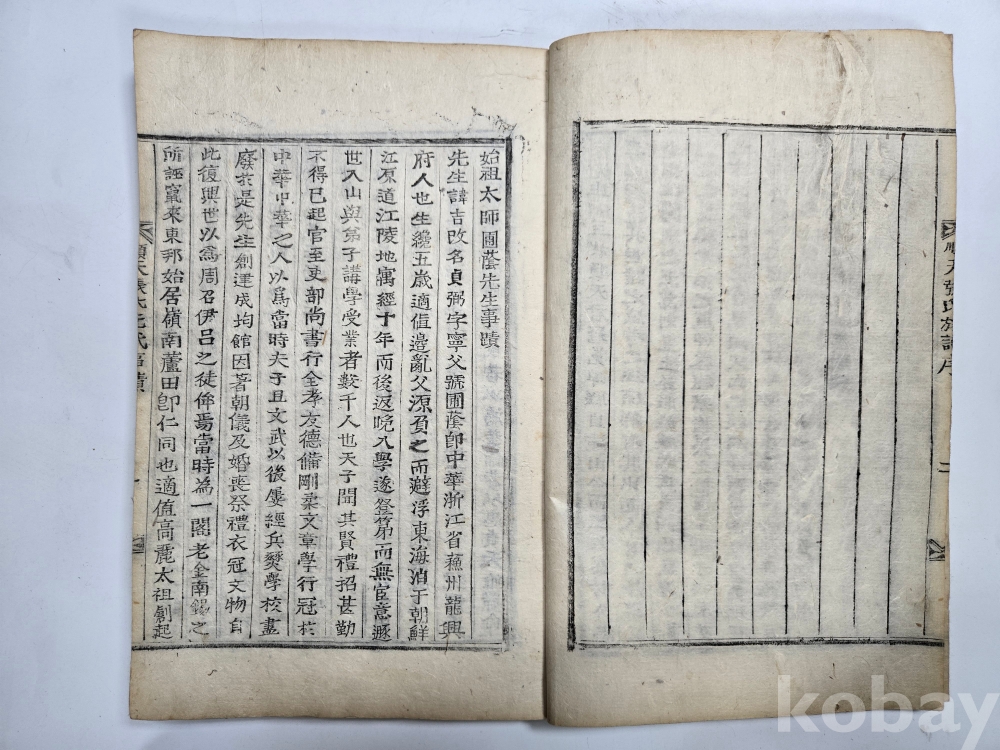 順天張氏族譜序
二
始祖太師圃蔭先生事蹟
先生諱吉改名貞弼字寧父號圃蔭卽中華浙江省蘓州龍興
府人也生纔五歲適值邊亂父源負之而避浮東海泊于朝鮮
江原道江陵地寓經十年而後返晩入學遂登第而無宦意遯
世入山與弟子講學受業者數千人也天子聞其賢禮招甚勤
不得已起官至吏部尚書行全孝友德備剛柔文章學行冠於
中華中華之人以爲當時夫子且文武以後屢經兵燹學校盡
廢於是先生創建成均館因著朝儀及婚喪祭禮衣冠文物自
此復興世以爲周召伊呂之徒侔焉當時為一閣老金南錫之
所誣竄來東邦始居嶺南蘆田卽仁同也適值高麗太祖創起
順天張氏先代事蹟
一
kobay